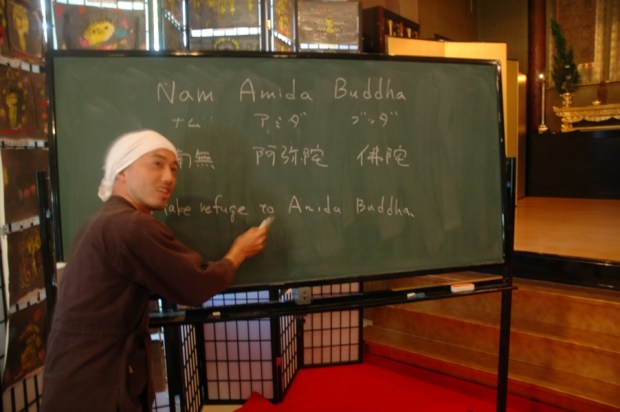 Nam Amida Buddha
ナム アミダ ブッダ
南無 阿弥陀 佛陀
take refuge to Amida Buddha.